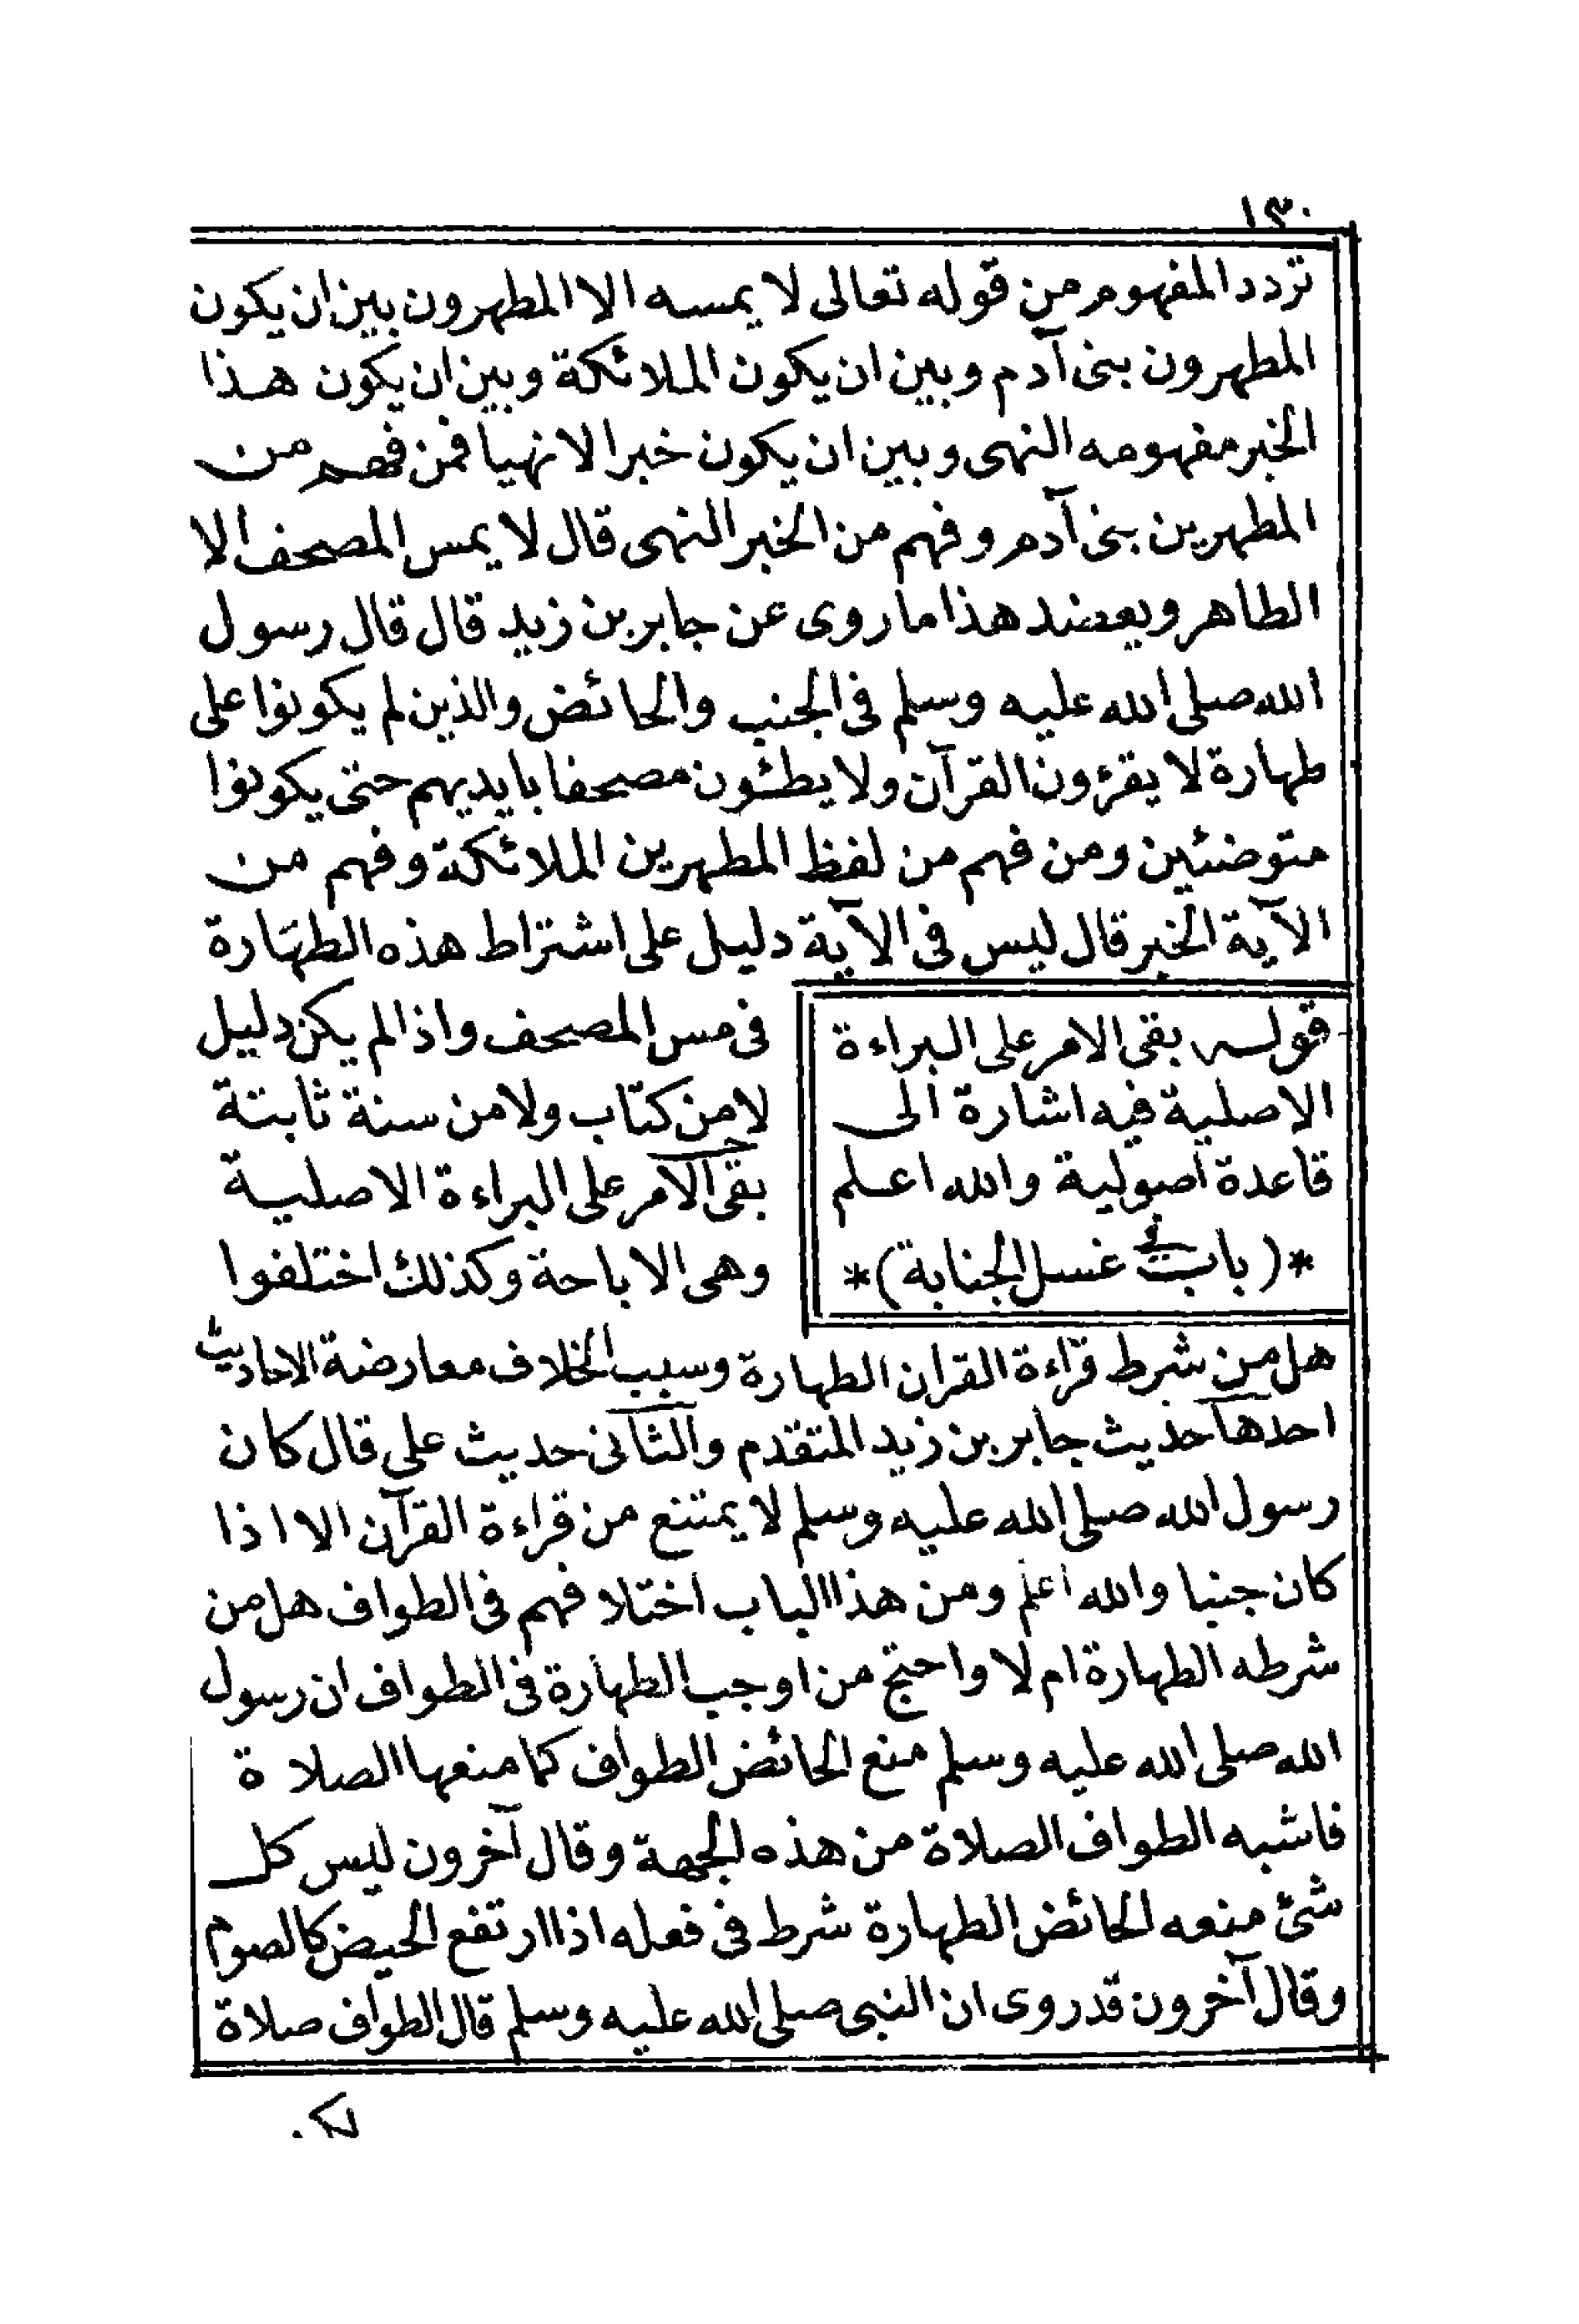 ١٣٠
تردد المفهوم من قوله تعالى لا يمسه الا المطهرون بين ان يكون
المطهرون بنى آدم وبين ان يكون الملائكة وبين ان يكون هذا
الخبر مفهومه النهى وبين ان يكون خبرا لا نهيا فمن فهم من
المطهرين بنى آدم وفهم من الخبر النهى قال لا يمس المصحف الا
الطاهر ويعضد هذا ما روى عن جابر بن زيد قال قال رسول
الله صلى الله عليه وسلم فى الجنب والحائض والذين لم يكونوا على
طهارة لا يقرؤن القرآن ولا يطئون مصحفا بايديهم حتى يكونوا
متوضئين ومن فهم من لفظ المطهرين الملائكة وفهم من
الآية الخبر قال ليس فى الآية دليل على اشتراط هذه الطهارة
فى مس المصحف واذا لم يكن دليل
لا من كتاب ولا من سنة ثابتة
بقى الامر على البراءة الاصلية
وهى الاباحة وكذلك اختلفوا
قوله بقى الامر على البراءة
الاصلية فيه اشارة الى
قاعدة اصولية والله اعلم
*(باب فى غسل الجنابة)*
هل من شرط قراءة القران الطهارة وسبب الخلاف معارضة الاحاديث
احدها حديث جابر بن زيد المتقدم والثانى حديث على قال كان
رسول الله صلى الله عليه وسلم لا يمتنع من قراءة القرآن الا اذا
كان جنبا والله اعلم ومن هذا الباب اختلافهم فى الطواف هل من
شرطه الطهارة ام لا واحتج من اوجب الطهارة فى الطواف ان رسول
الله صلى الله عليه وسلم منع الحائض الطواف كما منعها الصلاة
فاشبه الطواف الصلاة من هذه الجهة وقال آخرون ليس كل
شئ منعه الحائض الطهارة شرط فى فعله اذا ارتفع الحيض كالصوم
وقال آخرون قد روى ان النبى صلى الله عليه وسلم قال الطواف صلاة